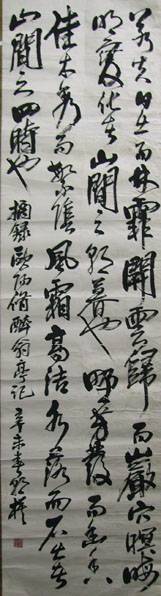 若夫日出而林霏開雲歸而巖穴暝晦
明變化者山間之朝暮也野芳發而幽香
佳木秀而繁陰風霜高潔水落而石出者
山間之四時也 摘錄歐陽脩醉翁亭記 辛未春